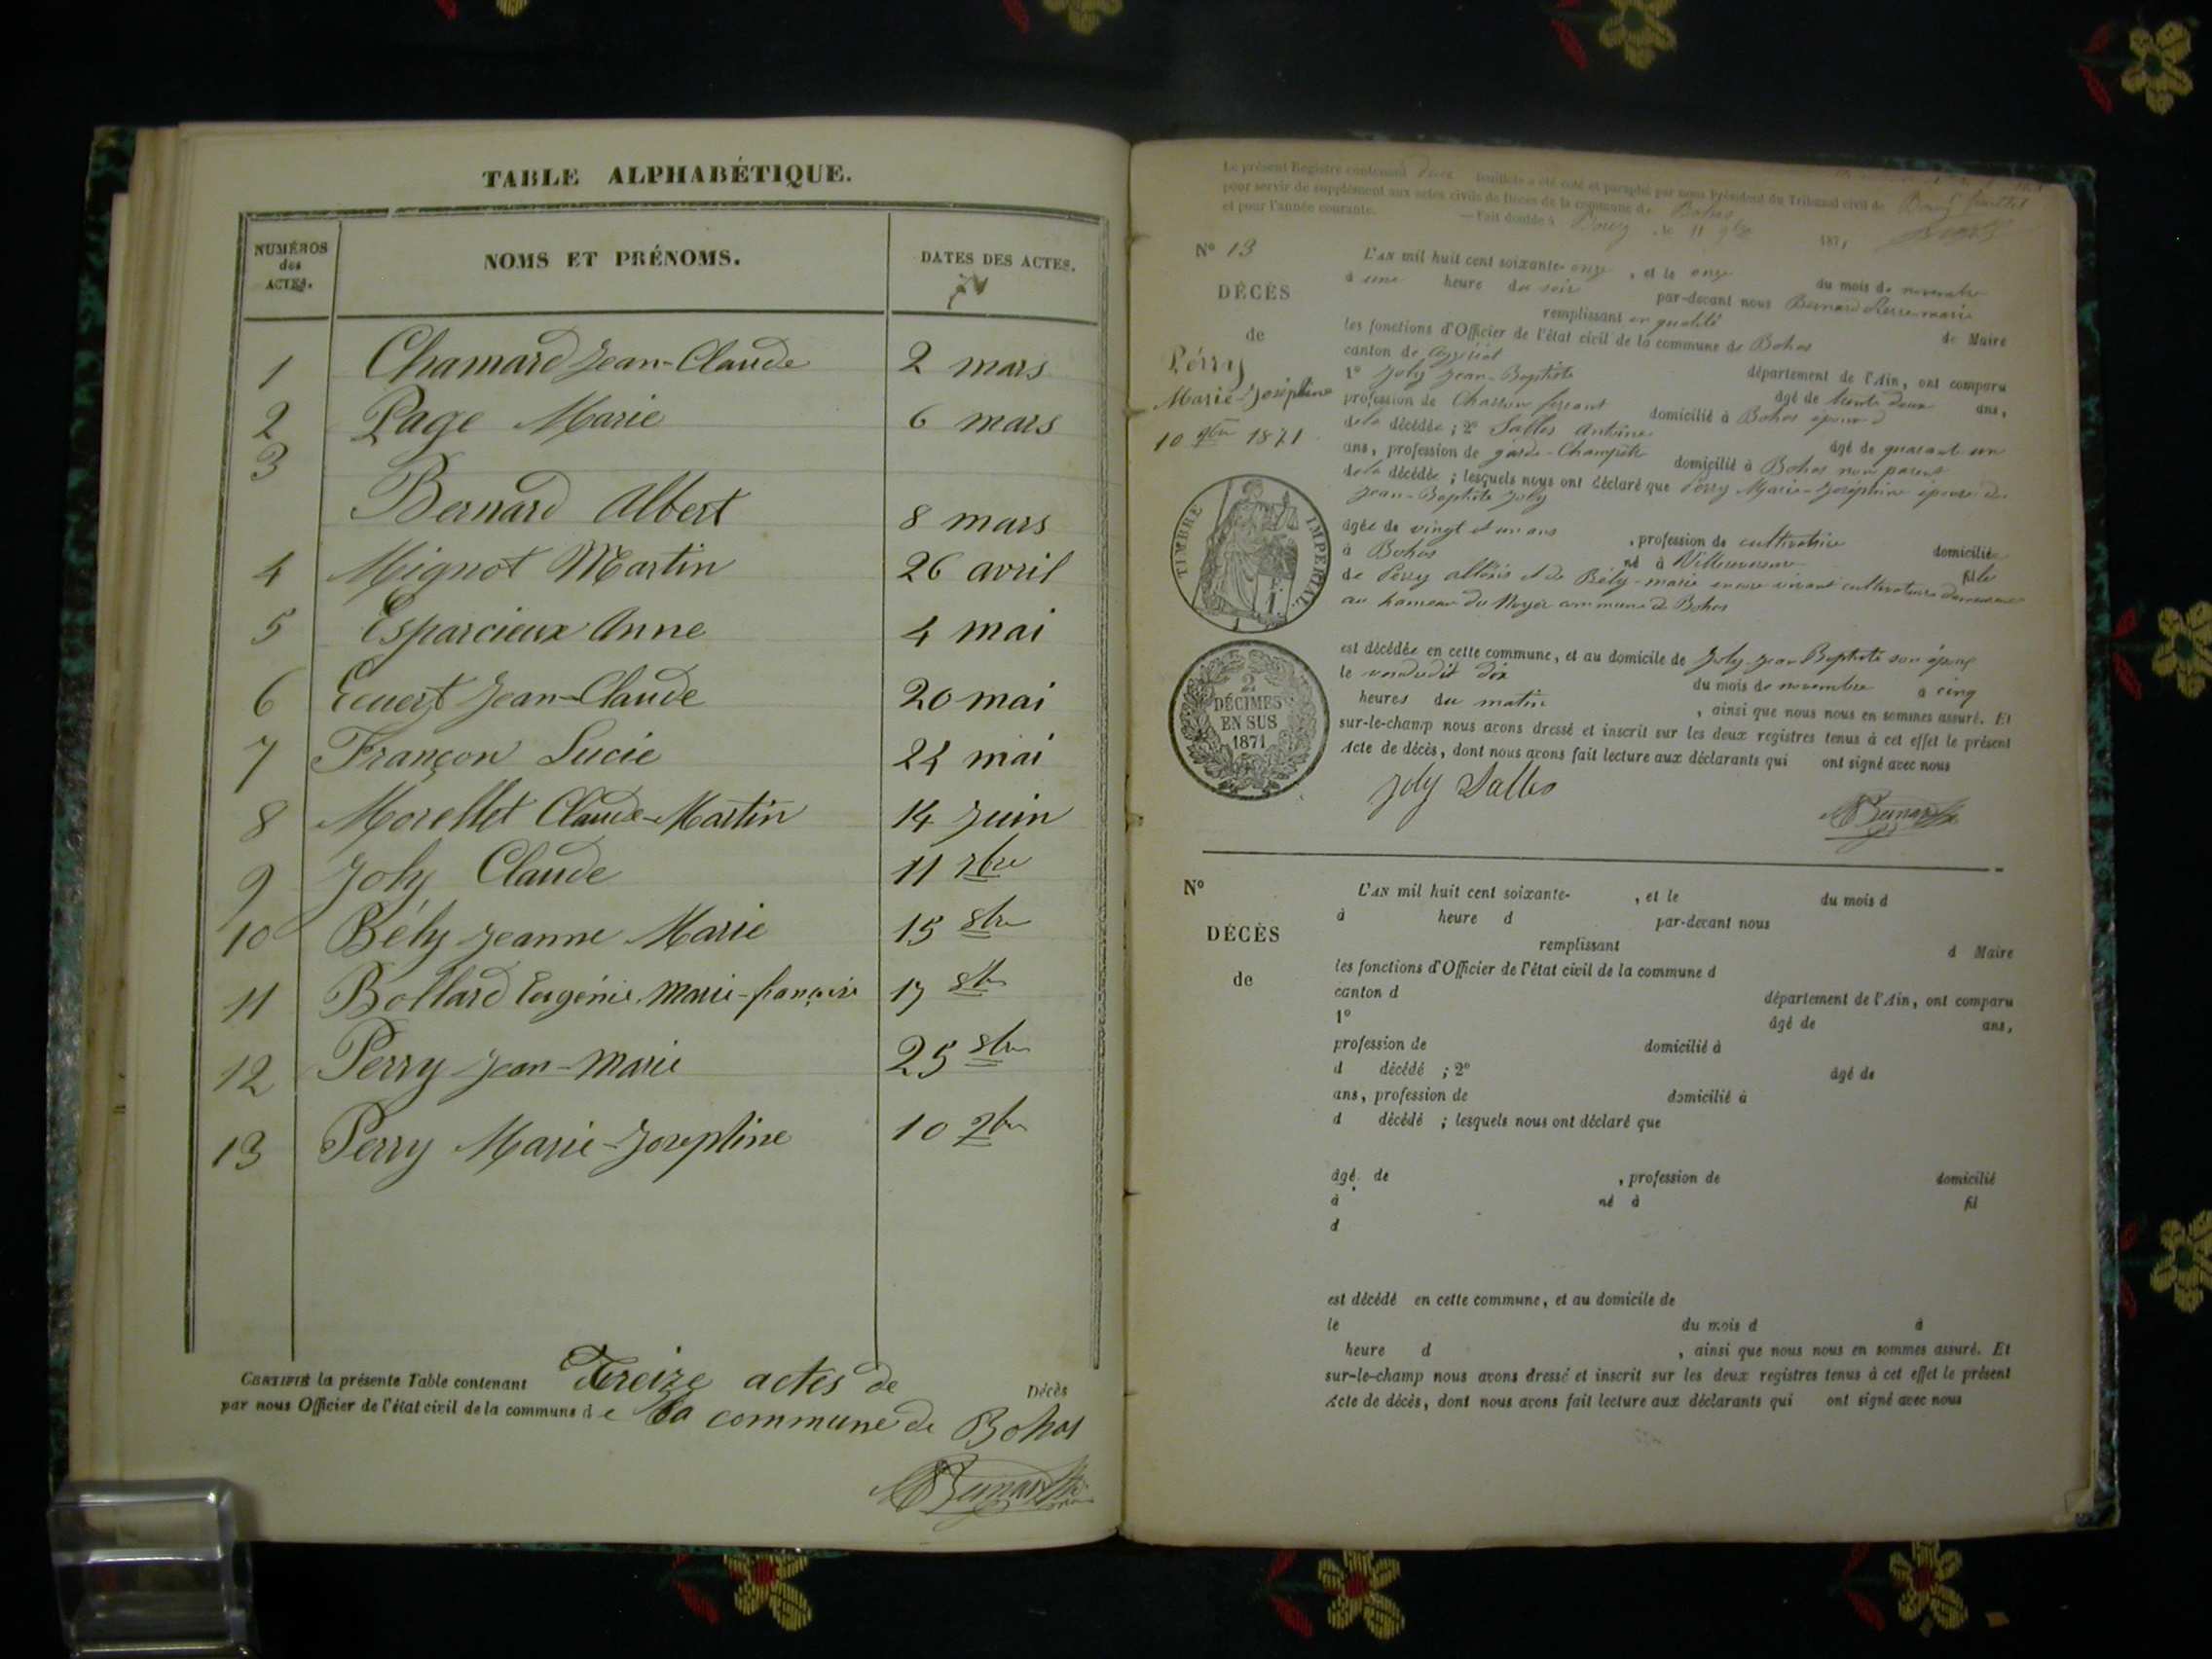 TABLE ALPHABÉTIQUE.
NUMÉROS
des
ACTES.
NOMS ET PRÉNOMS.
DATES DES ACTES.
1 Chamard Jean-Claude 2 mars
2 Page Marie 6 mars
3
Bernard Albert 8 mars
4 Mignot Martin 26 avril
5 Esparcieux Anne 4 mai
6 Ecuert Jean-Claude 20 mai
7 Françon Lucie 24 mai
8 Morellet Claude-Martin 14 Juin
9 Joly Claude 11 7bre
10 Bély Jeanne Marie 15 8bre
11 Bollard Eugénie Marie-françoise 17 8bre
12 Perry Jean-Marie 25 8bre
13 Perry Marie-Josephine 10 9bre
CERTIFIÉ la présente Table contenant Treize actes de Décès
par nous Officier de l'état civil de la commune de la commune de Bohas
Bernard
Le présent Registre contenant deux feuillets a été coté et paraphé par nous Président du Tribunal civil de Bourg
pour servir de supplément aux actes civils de Décès de la commune de Bohas
et pour l'année courante. — Fait double à Bourg, le 11 9bre 1871
N° 13
DÉCÈS
de
Pérry
Marie-Joséphine
10 9bre 1871
L'AN mil huit cent soixante-onze, et le onze du mois de novembre
à une heure du soir par-devant nous Bernard Pierre-marie
remplissant en qualité de Maire
les fonctions d'Officier de l'état civil de la commune de Bohas
canton de Ceyzériat département de l'Ain, ont comparu
1° Joly Jean-Baptiste âgé de trente deux ans,
profession de Charron ferrant domicilié à Bohas époux
de la décédée ; 2° Salles Antoine âgé de quarante un
ans, profession de garde-Champêtre domicilié à Bohas non parent
de la décédée ; lesquels nous ont déclaré que Perry Marie-Joséphine épouse de
Jean-Baptiste Joly
âgée de vingt et un ans, profession de cultivatrice domiciliée
à Bohas né à Villereversure fille
de Perry et de Bély-marie encore vivant cultivateurs
au hameau du Noyer commune de Bohas
est décédée en cette commune, et au domicile de Joly Jean Baptiste son époux
le vendredi dix du mois de novembre à cinq
heures du matin, ainsi que nous nous en sommes assuré. Et
sur-le-champ nous avons dressé et inscrit sur les deux registres tenus à cet effet le présent
Acte de décès, dont nous avons fait lecture aux déclarants qui ont signé avec nous
Joly Salles
Bernard
TIMBRE IMPÉRIAL.
1 F.
2
DÉCIMES
EN SUS
1871
N°
DÉCÈS
de
L'AN mil huit cent soixante- , et le du mois d
à heure d par-devant nous
remplissant d Maire
les fonctions d'Officier de l'état civil de la commune d
canton d département de l'Ain, ont comparu
1° âgé de ans,
profession de domicilié à
d décédé ; 2° âgé de
ans, profession de domicilié à
d décédé ; lesquels nous ont déclaré que
âgé de , profession de domicilié
à né à fil
d
est décédé en cette commune, et au domicile de
le du mois d à
heure d , ainsi que nous nous en sommes assuré. Et
sur-le-champ nous avons dressé et inscrit sur les deux registres tenus à cet effet le présent
Acte de décès, dont nous avons fait lecture aux déclarants qui ont signé avec nous